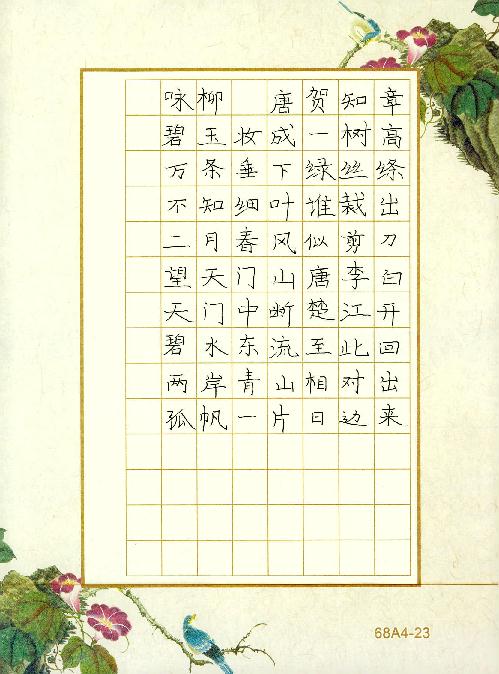 咏柳 唐贺知章
碧玉妆成一树高
万条垂下绿丝绦
不知细叶谁裁出
二月春风似剪刀
望天门山唐李白
天门中断楚江开
碧水东流至此回
两岸青山相对出
孤帆一片日边来
68A4-23